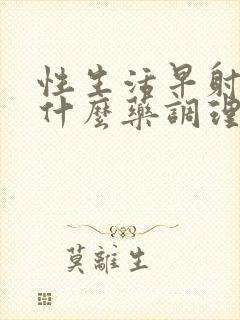 性生活早射
什麼藥調理
莫離生